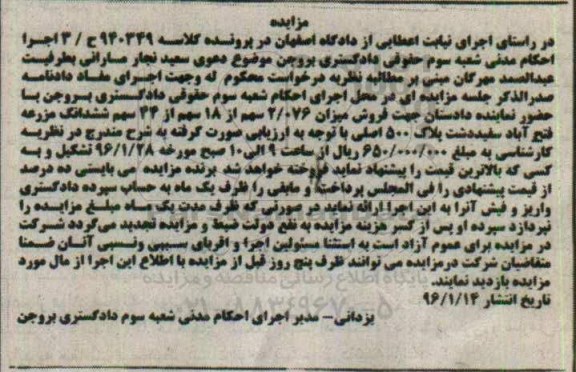 مزایده
در راستای اجرای نیابت اعطایی از دادگاه اصفهان در پرونده کلاسه ۹۴۰۳۴۹ ح / ۳ اجرا
احکام مدنی شعبه سوم حقوقی دادگستری بروجن موضوع دعوی سعید نجار مارانی بطرفیت
عبدالصمد مهرگان مبنی بر مطالبه نظریه درخواست محکوم له وجهت اجرای مفاد دادنامه
صدرالذکر جلسه مزایده ای در محل اجرای احکام شعبه سوم حقوقی دادگستری بروجن با
حضور نماینده دادستان جهت فروش میزان ۲/۰۷۶ سهم از ۱۸ سهم از ۴۴ سهم ششدانگ مزرعه
فتح آباد سفیددشت پلاک ۵۰۰ اصلی با توجه به ارزیابی صورت گرفته به شرح مندرج در نظریه
کارشناسی به مبلغ ۶۵۰/۰۰۰/۰۰۰ ریال از ساعت ۹ الی۱۰ صبح مورخه ۹۶/۱/۲۸ تشکیل و به
کسی که بالاترین قیمت را پیشنهاد نماید فروخته خواهد شد. برنده مزایده می بایستی ده درصد
از قیمت پیشنهادی را فی المجلس پرداخت و مابقی را ظرف یک ماه به حساب سپرده دادگستری
واریز و فیش آنرا به این اجرا ارائه نماید در صورتی که ظرف مدت یک ماه مبلغ مزایده را
نپردازد سپرده او پس از کسر هزینه مزایده به نفع دولت ضبط و مزایده تجدید می‌گردد شرکت
در مزایده برای عموم آزاد است به استثنا مسئولین اجرا و اقربای سببی ونسبی آنان ضمنا
متقاضیان شرکت درمزایده می توانند ظرف پنج روز قبل از مزایده با اطلاع این اجرا از مال مورد
مزایده بازدید نمایند.
تاریخ انتشار ۹۶/۱/۱۴
یزدانی – مدیر اجرای احکام مدنی شعبه سوم دادگستری بروجن
پایگاه اطلاع رسانی مناقصه و مزایده